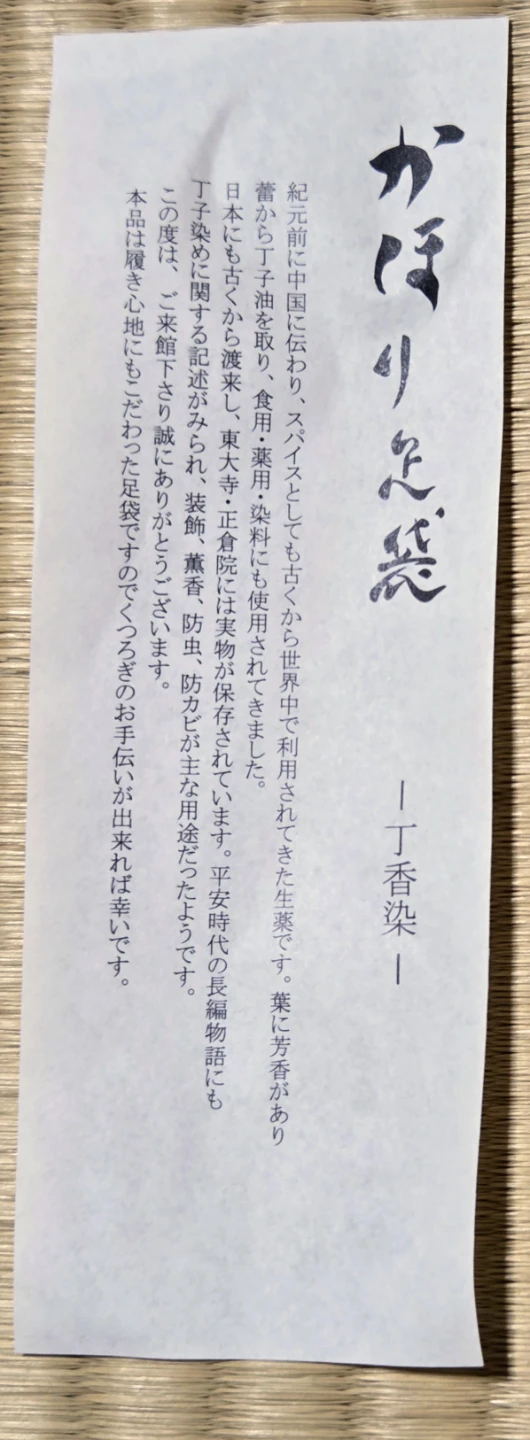 かほり足袋
ー丁香染ー
紀元前に中国に伝わり、スパイスとしても古くから世界中で利用されてきた生薬です。葉に芳香があり
蕾から丁子油を取り、食用・薬用・染料にも使用されてきました。
日本にも古くから渡来し、東大寺・正倉院には実物が保存されています。平安時代の長編物語にも
丁子染めに関する記述がみられ、装飾、薫香、防虫、防カビが主な用途だったようです。
この度は、ご来館下さり誠にありがとうございます。
本品は履き心地にもこだわった足袋ですのでくつろぎのお手伝いが出来れば幸いです。